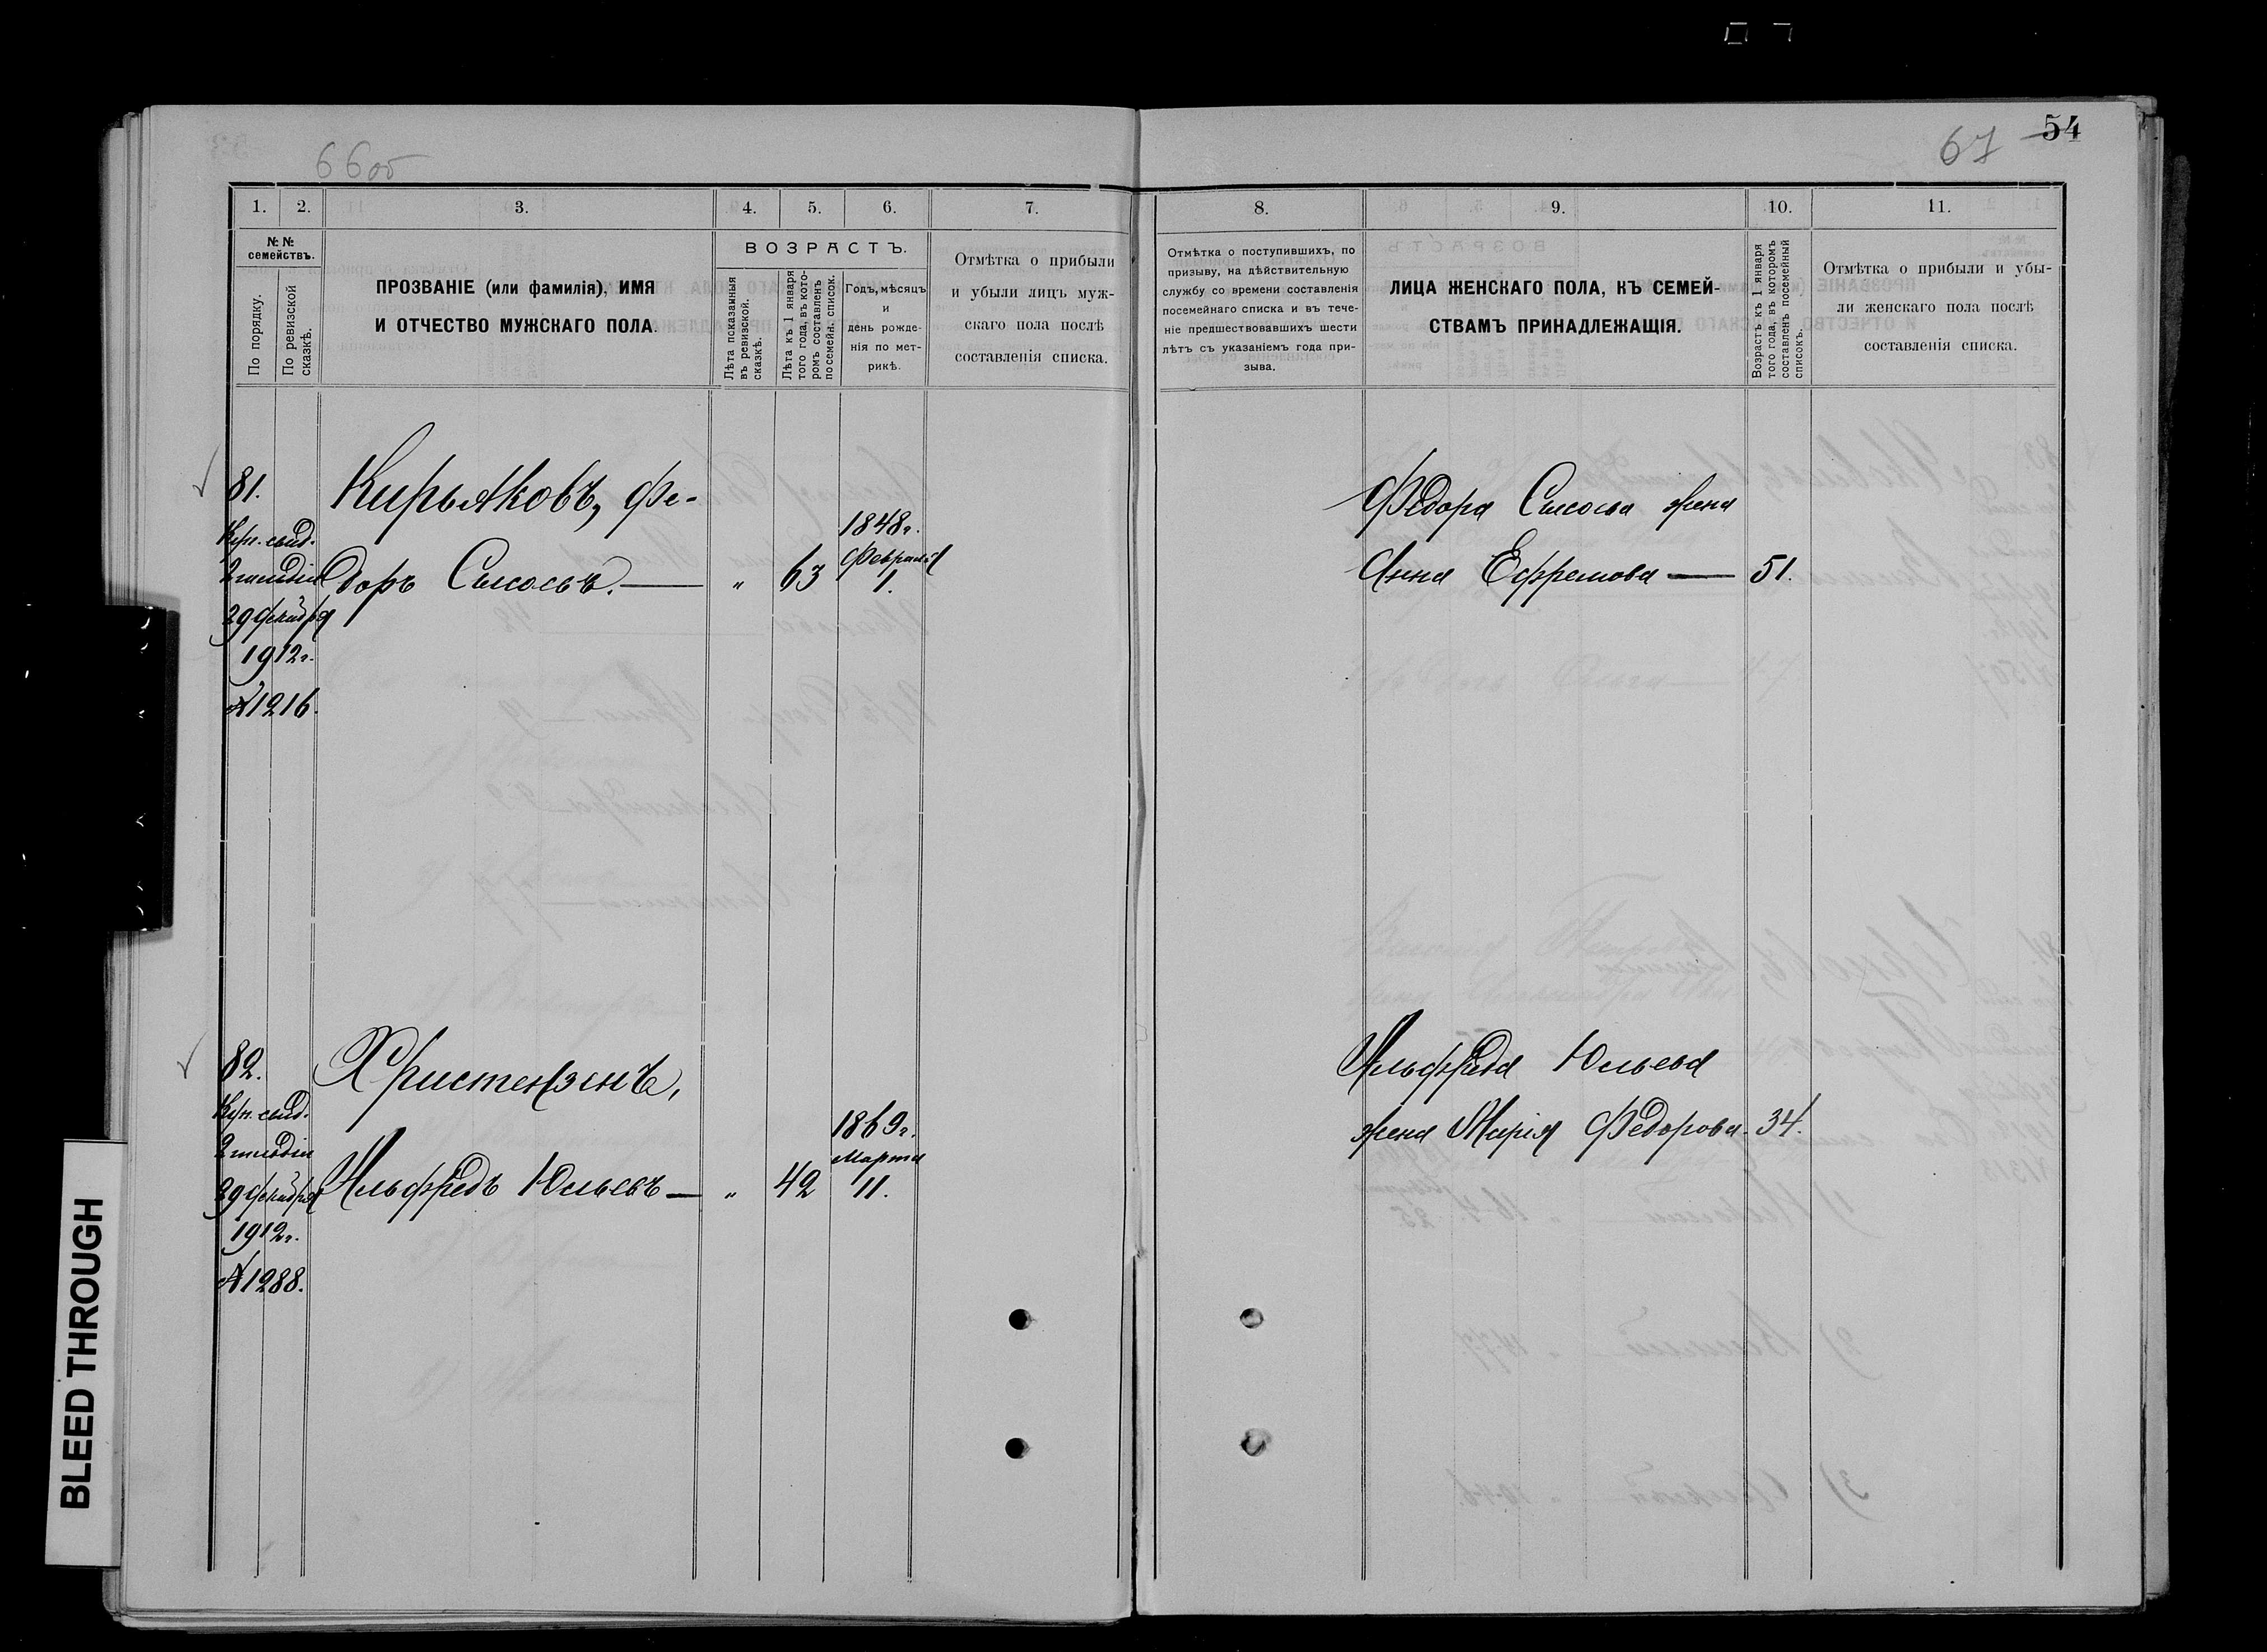 66об
67 54
1. 2. 3. 4. 5. 6. 7.
№ №
семействъ.
По порядку.
По ревизской
сказкѣ.
ПРОЗВАНІЕ (или фамилія), ИМЯ
И ОТЧЕСТВО МУЖСКАГО ПОЛА.
ВОЗРАСТЪ.
Лѣта показанныя
въ ревизской.
сказкѣ.
Лѣта къ 1 января
того года, въ кото-
ромъ составленъ
посемейн. список.
Годъ, мѣсяцъ
и
день рожде-
нія по мет-
рикѣ.
Отмѣтка о прибыли
и убыли лицъ муж-
скаго пола послѣ
составленія списка.
81.
Куп. свид.
2 гильдіи
29 Декабря
1912 г.
№ 1216.
Кирьяковъ, Фе-
доръ Сысоевъ. — „ 63
1848 г.
Февраля
1.
82.
Куп. свид.
2 гильдіи
29 Декабря
1912 г.
№ 1288.
Христензенъ,
Альфредъ Юльевъ — „ 42
1869 г.
Марта
11.
8. 9. 10. 11.
Отмѣтка о поступившихъ, по
призыву, на дѣйствительную
службу со времени составленія
посемейнаго списка и въ тече-
ніе предшествовавшихъ шести
лѣтъ съ указаніемъ года при-
зыва.
ЛИЦА ЖЕНСКАГО ПОЛА, КЪ СЕМЕЙ-
СТВАМЪ ПРИНАДЛЕЖАЩІЯ.
Возрастъ къ 1 января
того года, въ которомъ
составленъ посемейный
списокъ.
Отмѣтка о прибыли и убы-
ли женскаго пола послѣ
составленія списка.
Федора Сысоева жена
Анна Ефремова — 51.
Альфреда Юльева
жена Марія Федорова. 34.
BLEED THROUGH